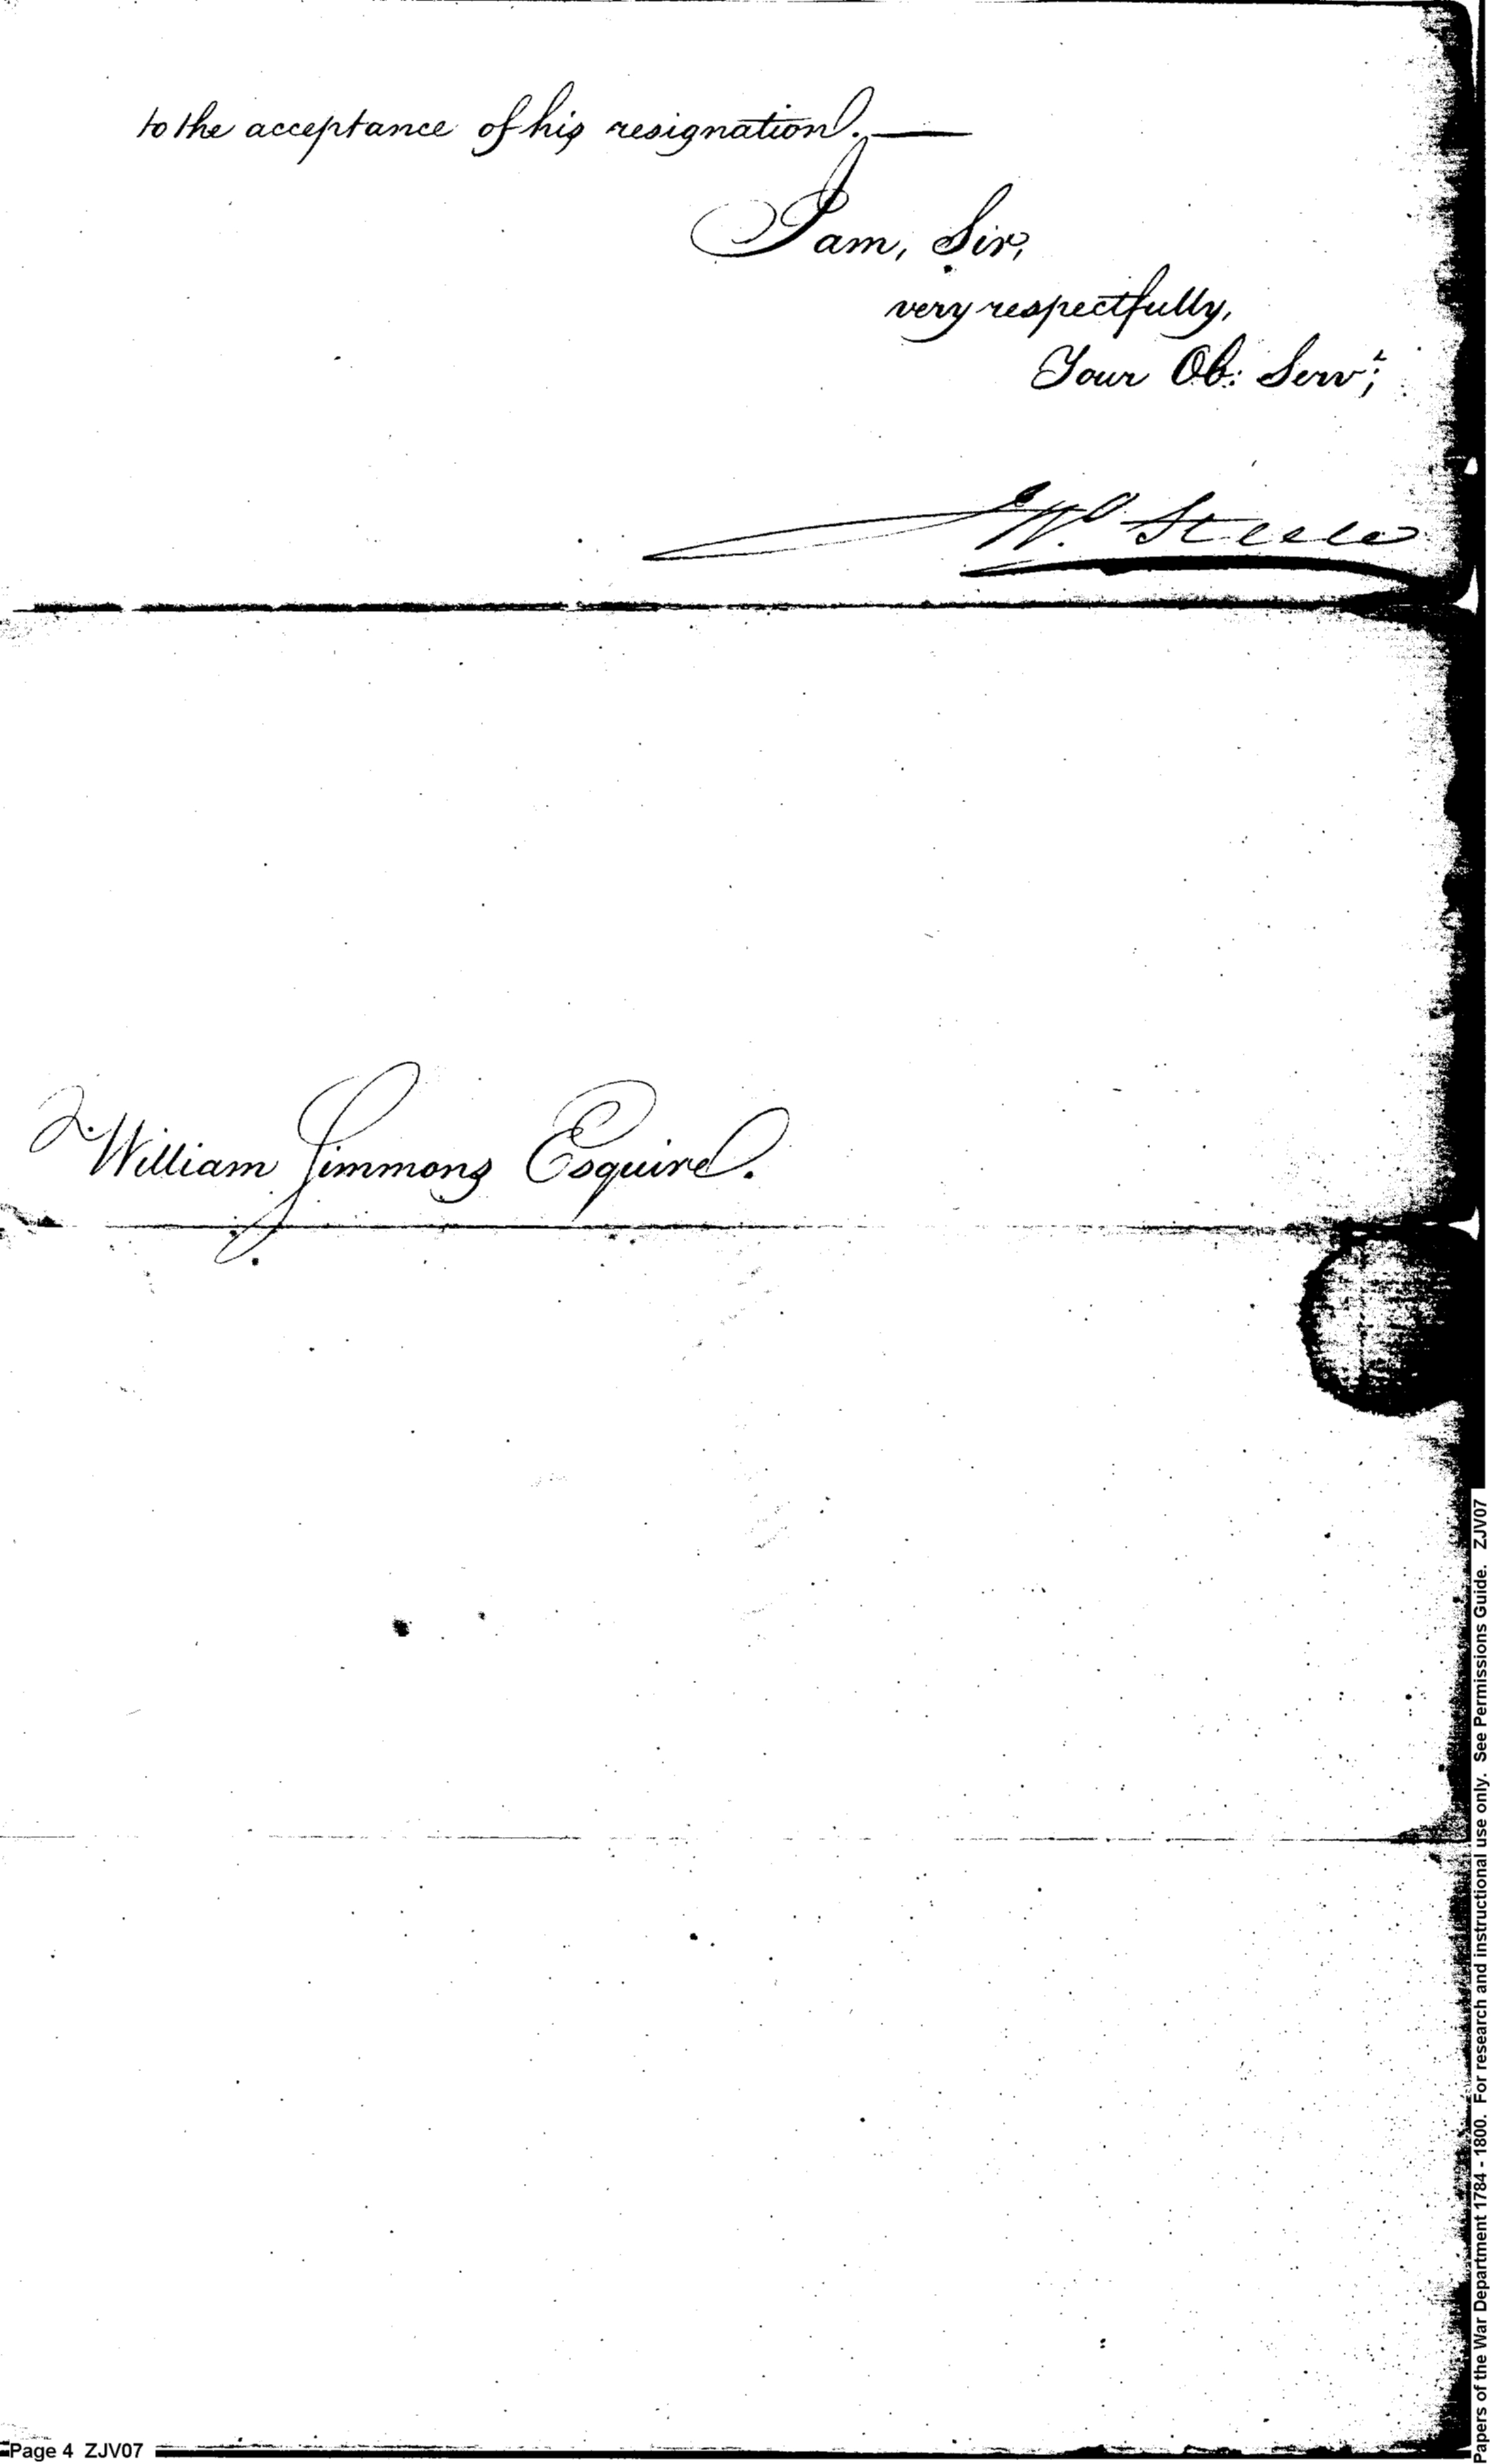 to the acceptance of his resignation.—
I am, Sir,
very respectfully,
Your Ob: Servt;
Jno Steele
William Simmons Esquire.
Page 4 ZJV07
Papers of the War Department 1784 - 1800. For research and instructional use only. See Permissions Guide. ZJV07